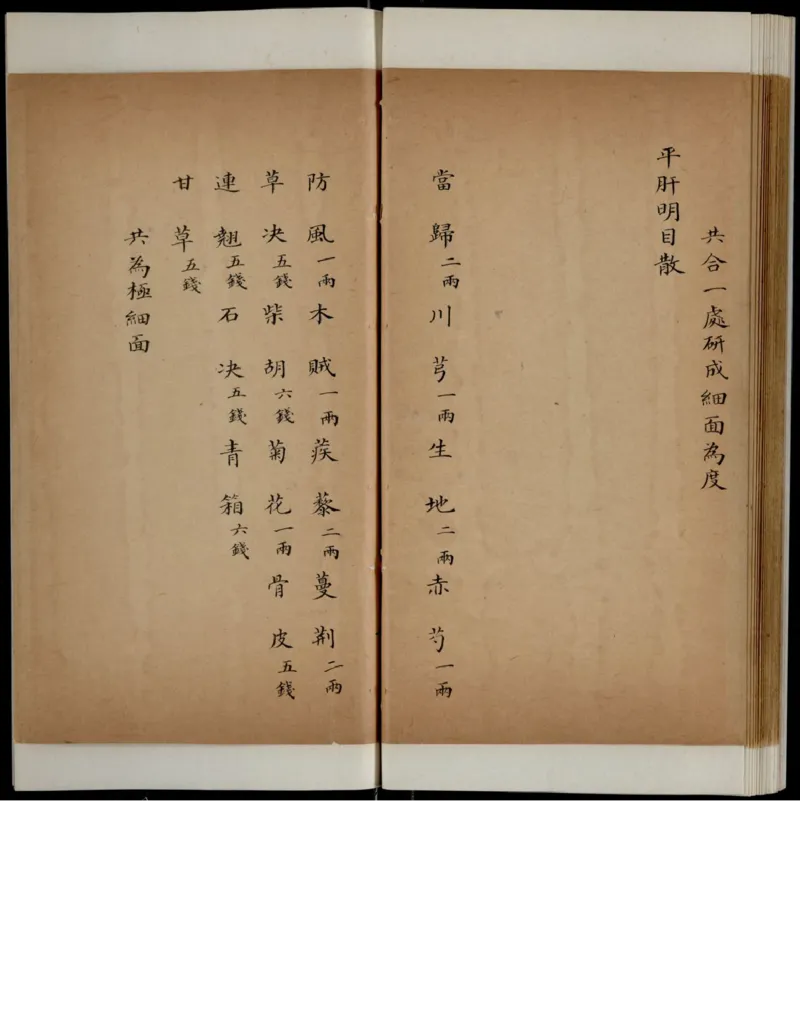 共合一處研成細面為度
平肝明目散
當歸二兩川芎一兩生地二兩赤芍一兩
防風一兩木賊一兩蒺藜二兩蔓荆二兩
草决五錢柴胡六錢菊花一兩骨皮五錢
連翹五錢石决五錢青箱六錢
甘草五錢
共為極細面